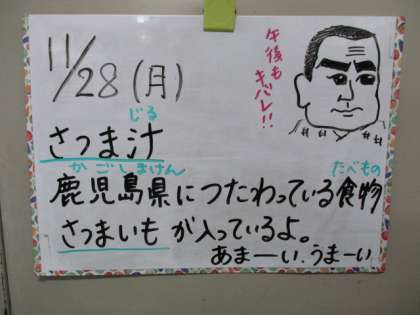 11/28(月)
午後も
キバレ!!
じる
さつま汁
かごしまけん たべもの
鹿児島県につたわっている食物
さつまいもが入っているよ。
あまーい、うまーい